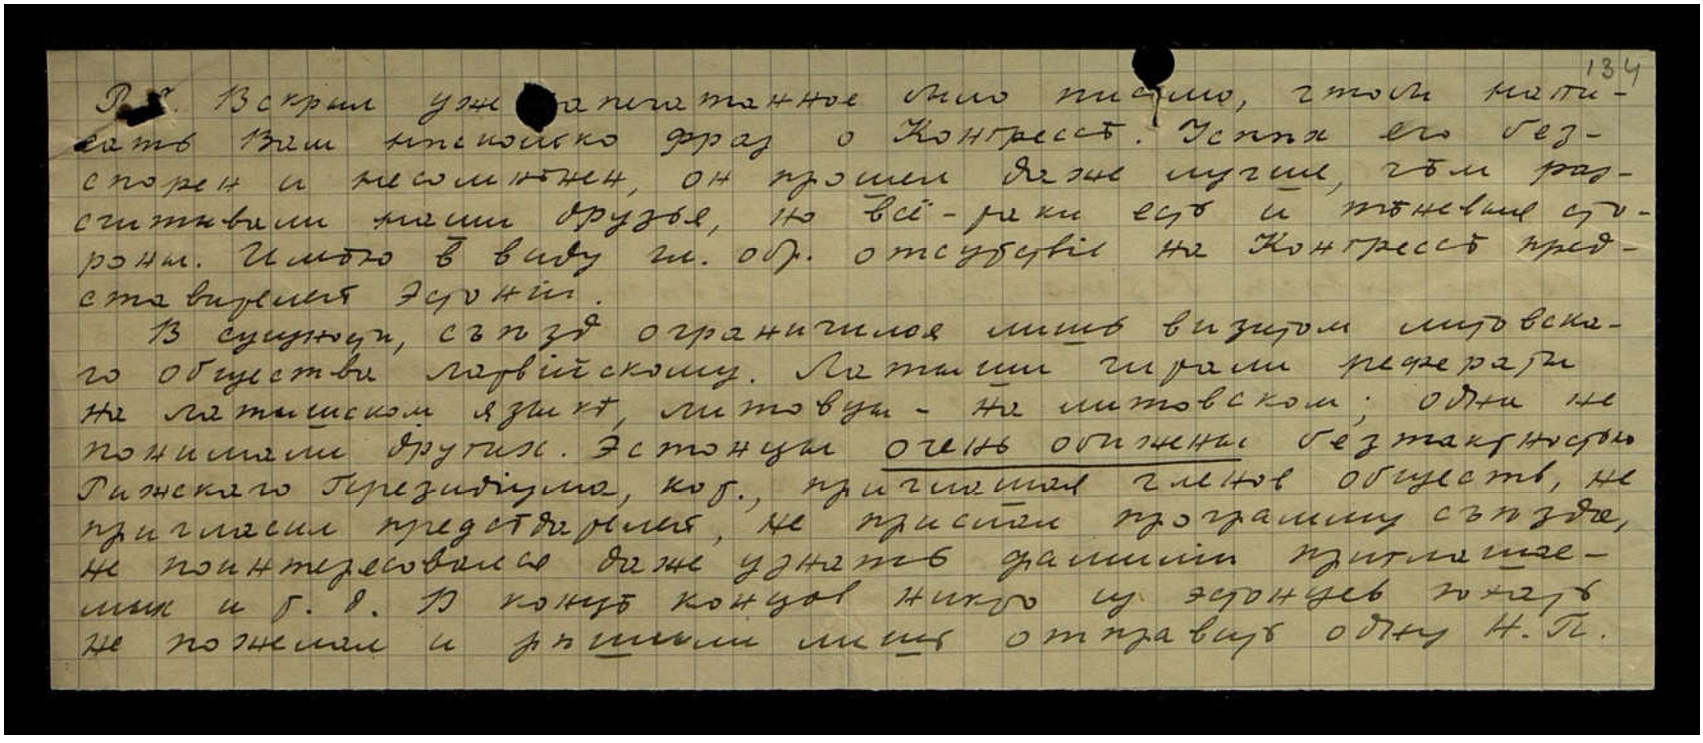 134
P.S. Вскрыл уже запечатанное было письмо, чтобы напи-
сать Вам нѣсколько фраз о Конгрессѣ. Успѣх его без-
спорен и несомнѣнен, он прошел даже лучше, чѣм раз-
считывали наши друзья, но всё-таки есть и тѣневыя сто-
роны. Имѣю в виду гл. обр. отсутствіе на Конгрессѣ пред-
ставителей Эстоніи.
В сущности, съѣзд ограничился лишь визитом литовска-
го общества латвійскому. Латыши читали рефераты
на латышском языкѣ, литовцы - на литовском; одни не
понимали других. Эстонцы очень обижены безтактностью
Рижскаго Президіума, кот., приглашая членов обществ, не
пригласил представителей, не прислал программу съѣзда,
не поинтересовался даже узнать фамиліи приглашае-
мых и т. д. В концѣ концов никто из эстонцев поѣхать
не пожелал и рѣшили лишь отправить одну Н. П.